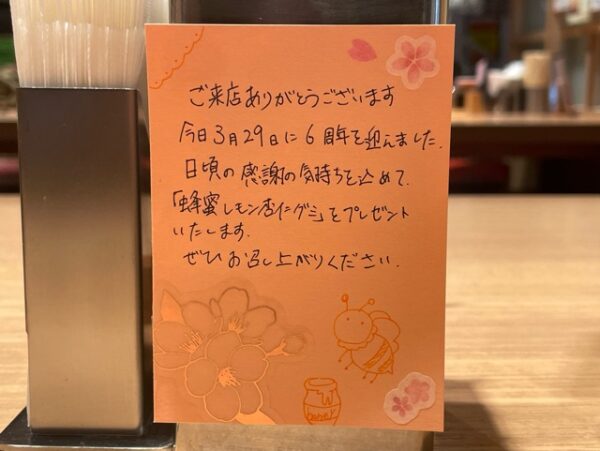 ご来店ありがとうございます
今日3月29日に6周年を迎えました.
日頃の感謝の気持ちを込めて.
「蜂蜜レモン杏仁グミ」をプレゼント
いたします.
ぜひお召し上がりください.
honey